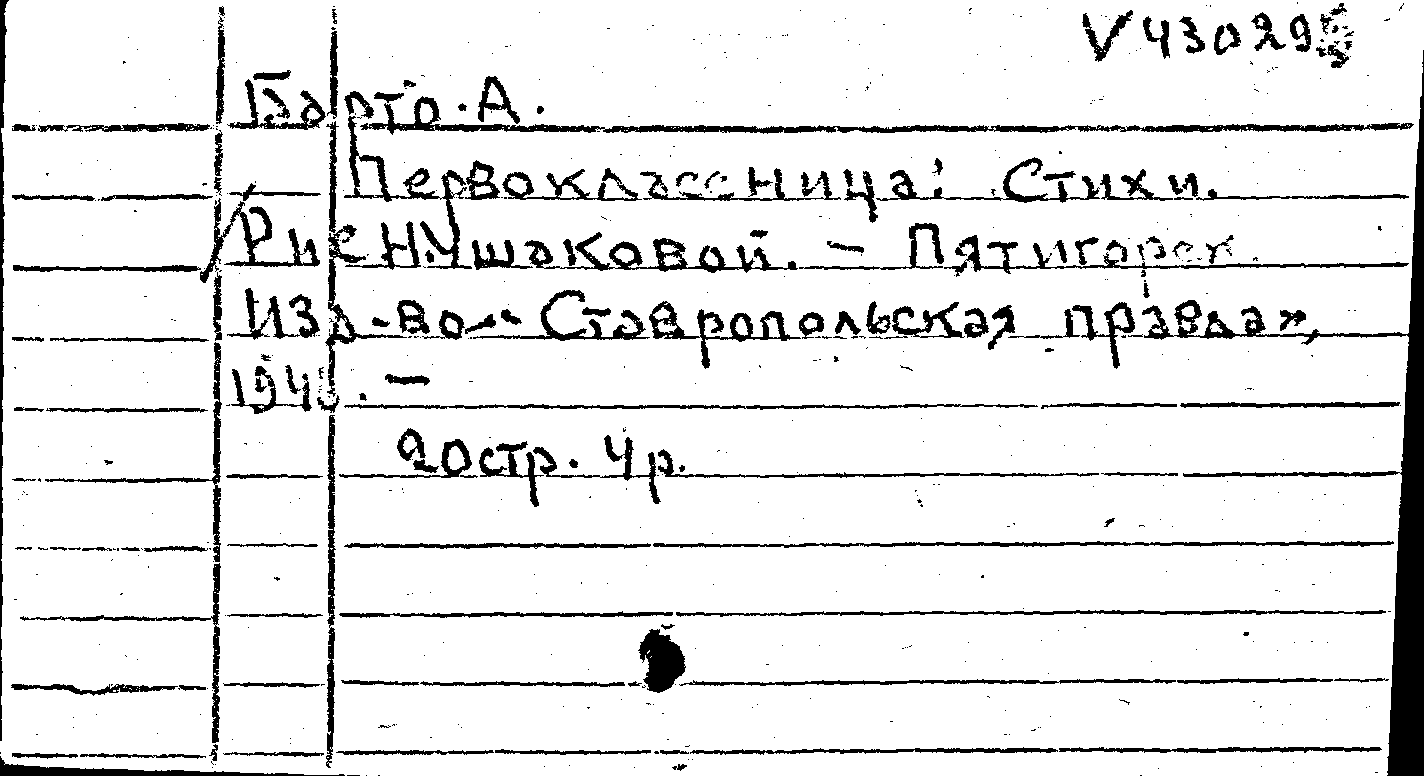 Барто. А.
Первоклассница: Стихи.
Рис Н.Ушаковой. – Пятигорск
Изд-во – "Ставропольская правда",
20стр. 4р.